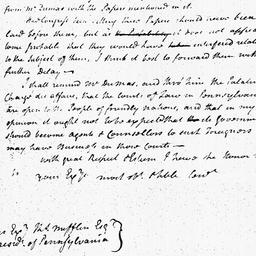 from Mr Dumas with the Papers mentioned in it.
these Papers should never been
laid before them, but as it does not appear
some probable that they would have taken interfered relat
to the Subject of them, I think it best to forward them with
further Delay —
I shall remind Mr Dumas, and thro' him the Palatin
Chargé des affaires, that the Courts of Law in Pennsylvania
are open to the People of friendly nations, and that in my
opinion it ought not to be expected that governm
should become agents & Counsellors to such foreigners
may have Business in those Courts —
with great Respect & Esteem I have the Honor
is your Exys most Obt. & hble Servt
Exy. Ths. Mifflin Esqr
Presidt. of Pennsylvania